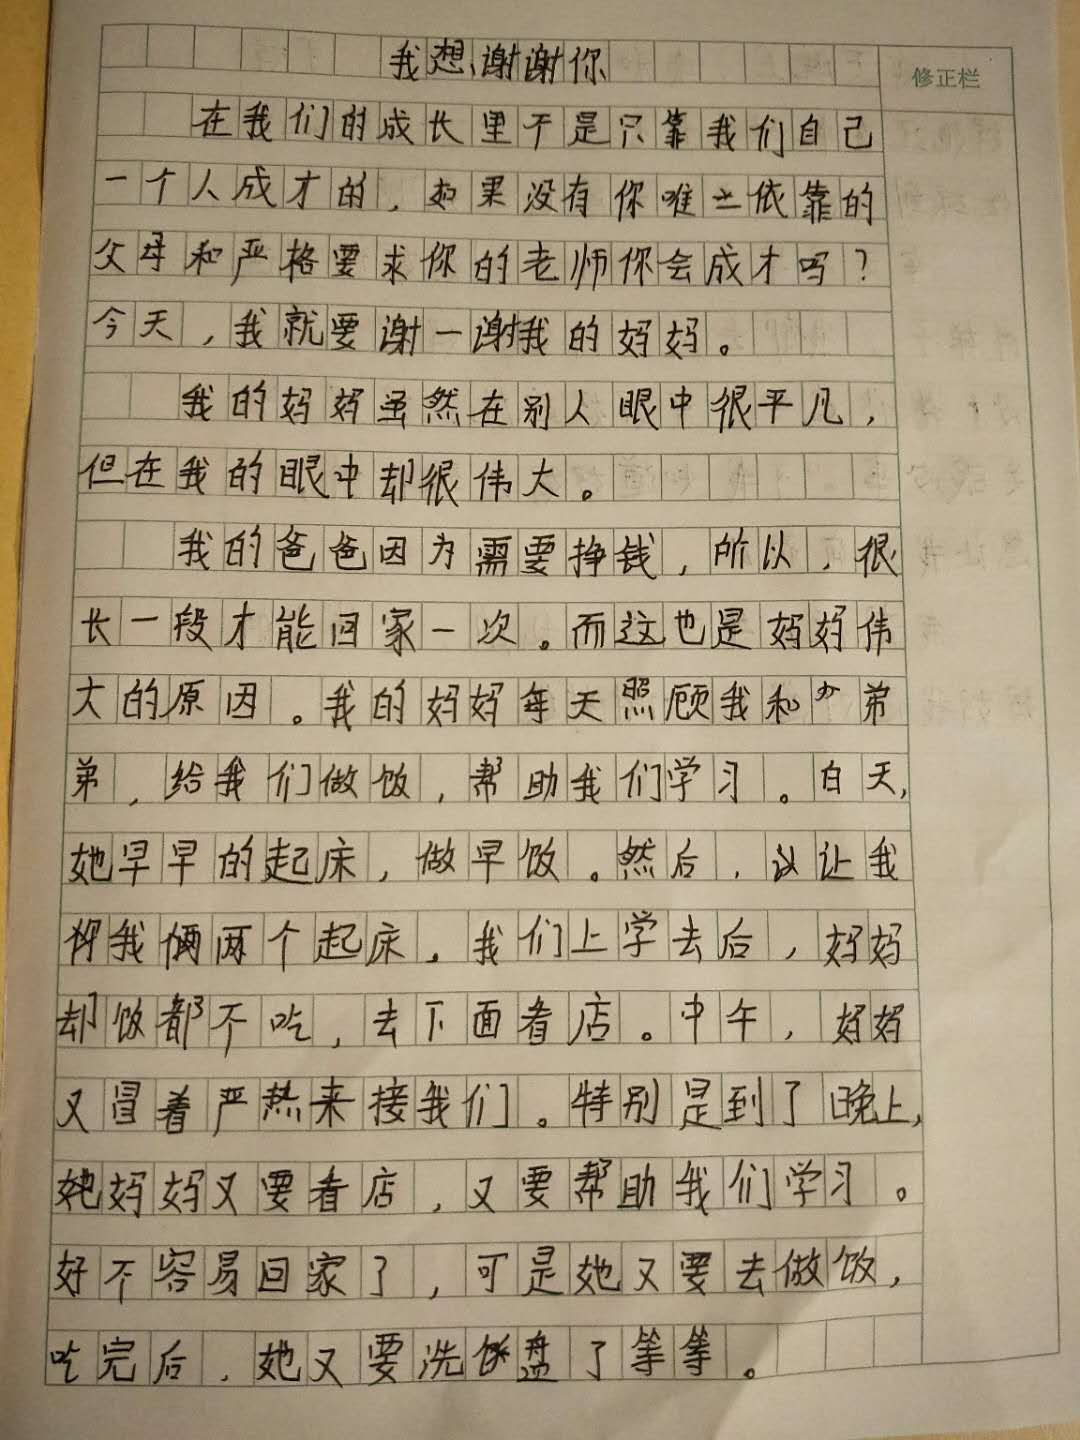 我想谢谢你
修正栏
在我们的成长里干是只靠我们自己
一个人成才的，如果没有你唯一依靠的
父母和严格要求你的老师你会成才吗？
今天，我就要谢一谢我的妈妈。
我的妈妈虽然在别人眼中很平凡，
但在我的眼中却很伟大。
我的爸爸因为需要挣钱，所以，很
长一段才能回家一次。而这也是妈妈伟
大的原因。我的妈妈每天照顾我和弟
弟，给我们做饭，帮助我们学习。白天，
她早早的起床，做早饭。然后，让我
我俩两个起床。我们上学去后，妈妈
却饭都不吃，去下面看店。中午，妈妈
又冒着严热来接我们。特别是到了晚上，
她妈妈又要看店，又要帮助我们学习。
好不容易回家了，可是她又要去做饭，
吃完后，她又要洗盘了等等。